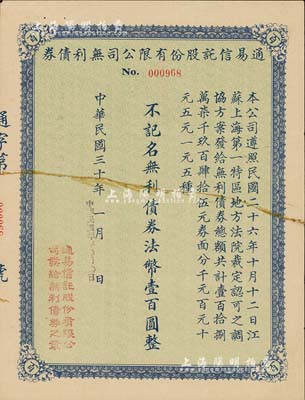 通易信託股份有限公司無利債券
No. 000968
本公司遵照民國二十六年十月十二日江
蘇上海第一特區地方法院裁定認可之調
協方案發給無利債券總額共計壹百拾捌
萬柒千玖百肆拾伍元券面分千元百元十
元五元一元五種
不記名無利債券法幣壹百圓整
中華民國三十年一月 日
通易信託股份有限公
司發給無利債券之章
通字第 000968 號
百
百
百
百